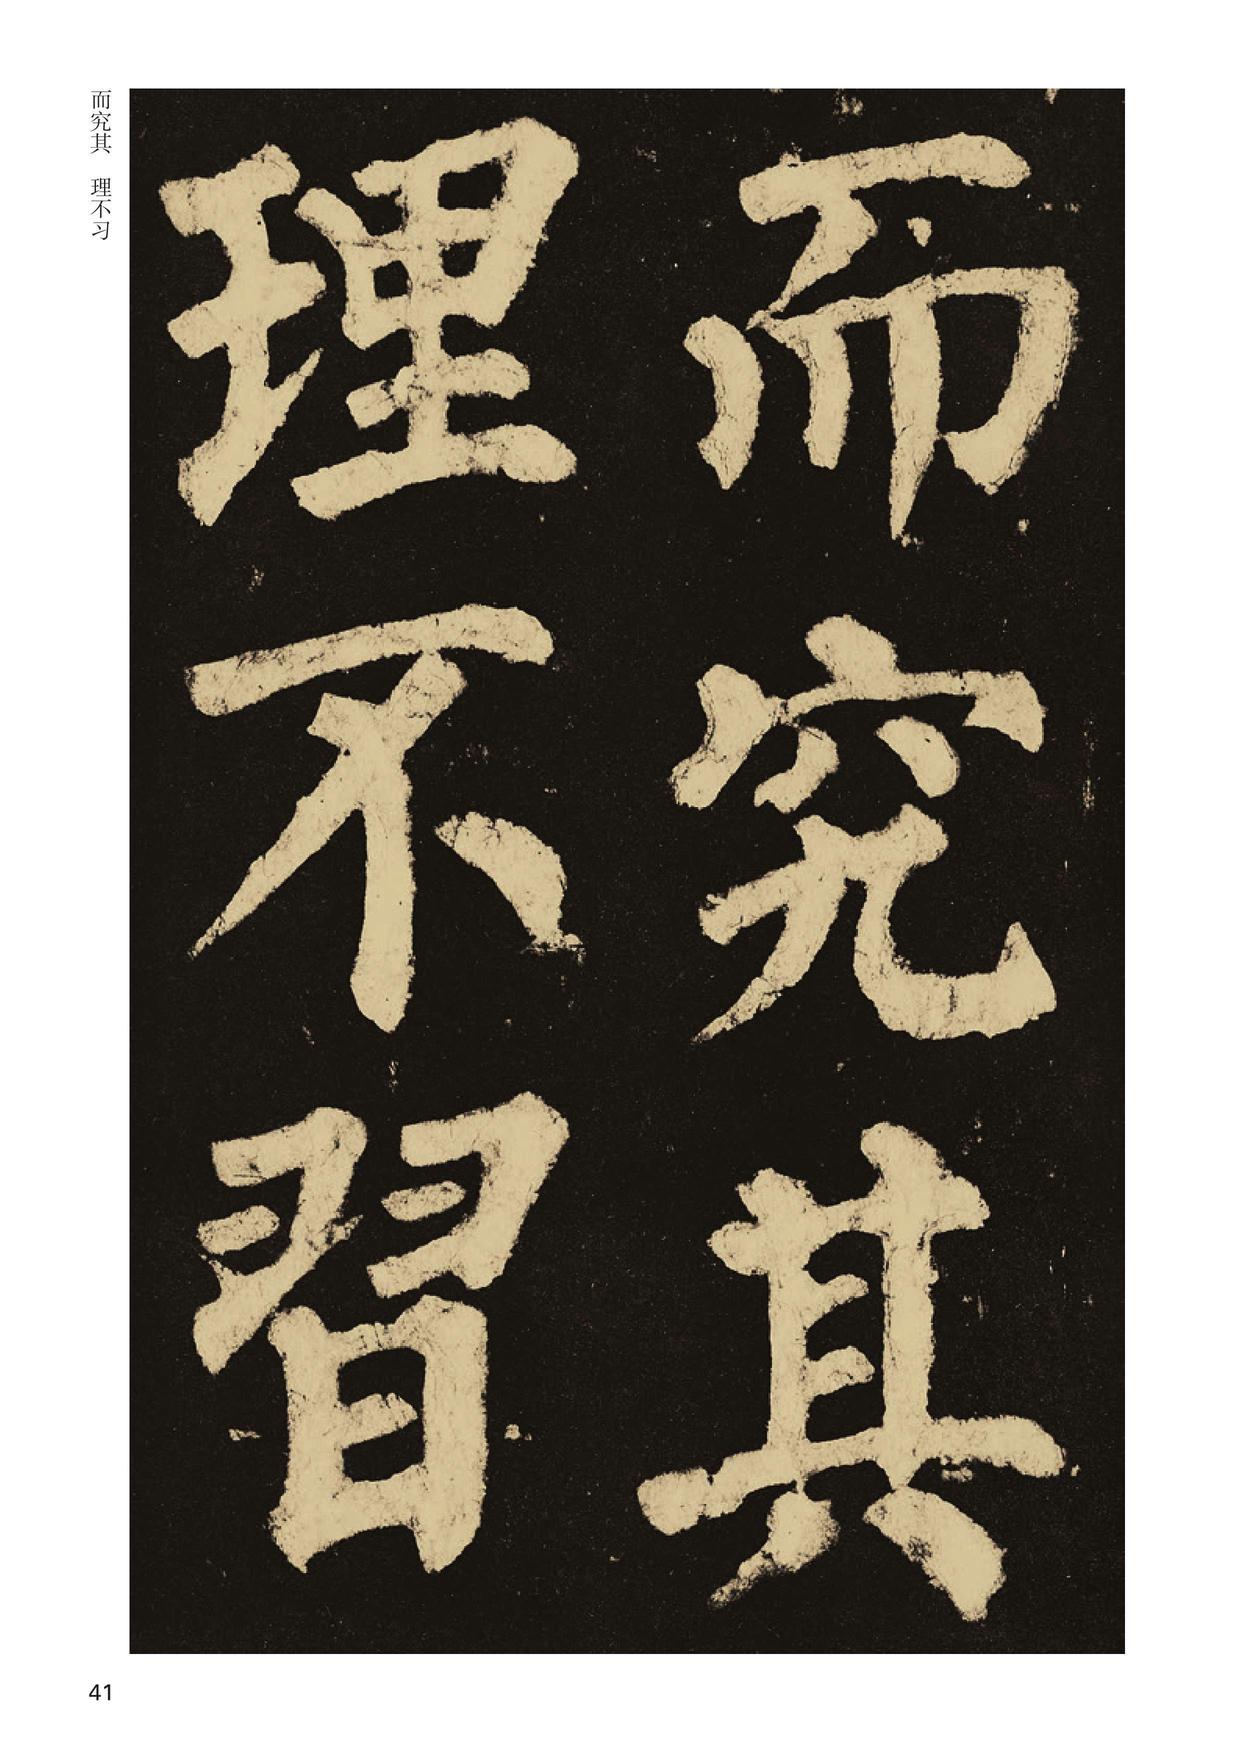 而究其
理不習
而究其 理不习
41